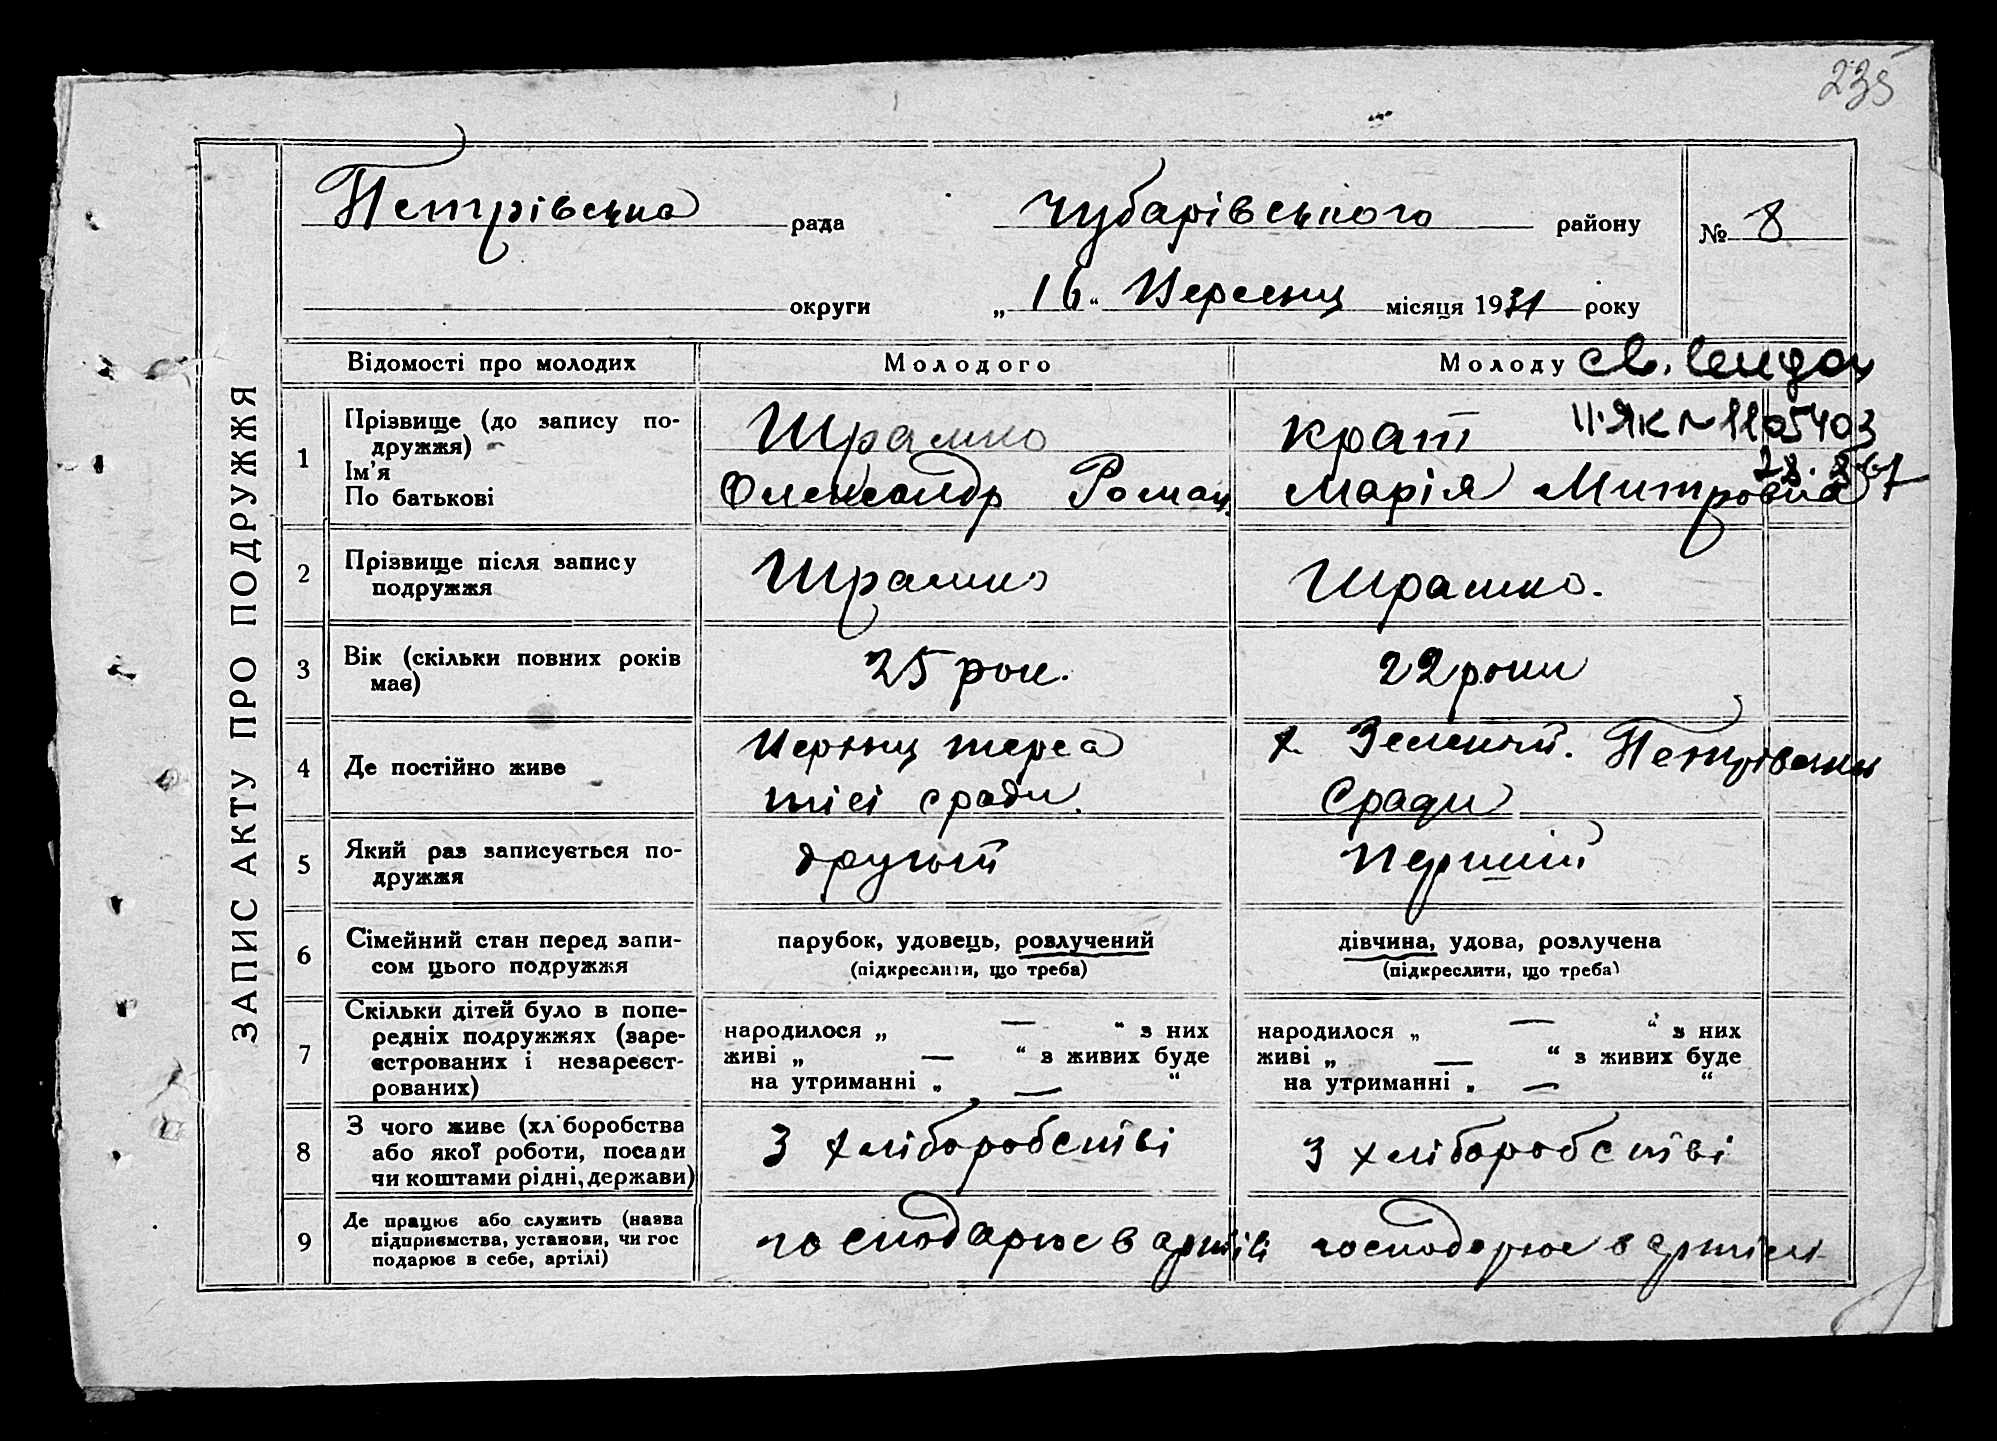 235
ЗАПИС АКТУ ПРО ПОДРУЖЖЯ
Петрівська рада Чубарівського району № 8
округи „ 16 “ Вересня місяця 1931 року
Відомості про молодих Молодого Молоду
св.
1 Прізвище (до запису по-
дружжя) Шрамко Крат II ЯК № 1105403
Ім'я
По батькові Олександр Роман Марія Митровна
2 Прізвище після запису
подружжя Шрамко Шрамко.
3 Вік (скільки повних років
має) 25 рок. 22 роки
4 Де постійно живе х. Зелений. Петрівськи
тієї сради. Сради
5 Який раз записується по-
дружжя другий перший
6 Сімейний стан перед запи-
сом цього подружжя
парубок, удовець, розлучений дівчина, удова, розлучена
(підкреслити, що треба) (підкреслити, що треба)
7 Скільки дітей було в попе-
редніх подружжях (заре-
єстрованих і незареєст-
рованих)
народилося „ — “ з них народилося „ — “ з них
живі „ — “ з живих буде живі „ — “ з живих буде
на утриманні „ — “ на утриманні „ — “
8 З чого живе (хліборобства
або якої роботи, посади
чи коштами рідні, держави)
З хліборобстві З хліборобстві
9 Де працює або служить (назва
підприємства, установи, чи гос
подарює в себе, артілі)
господарює в артілі господарює в артілі